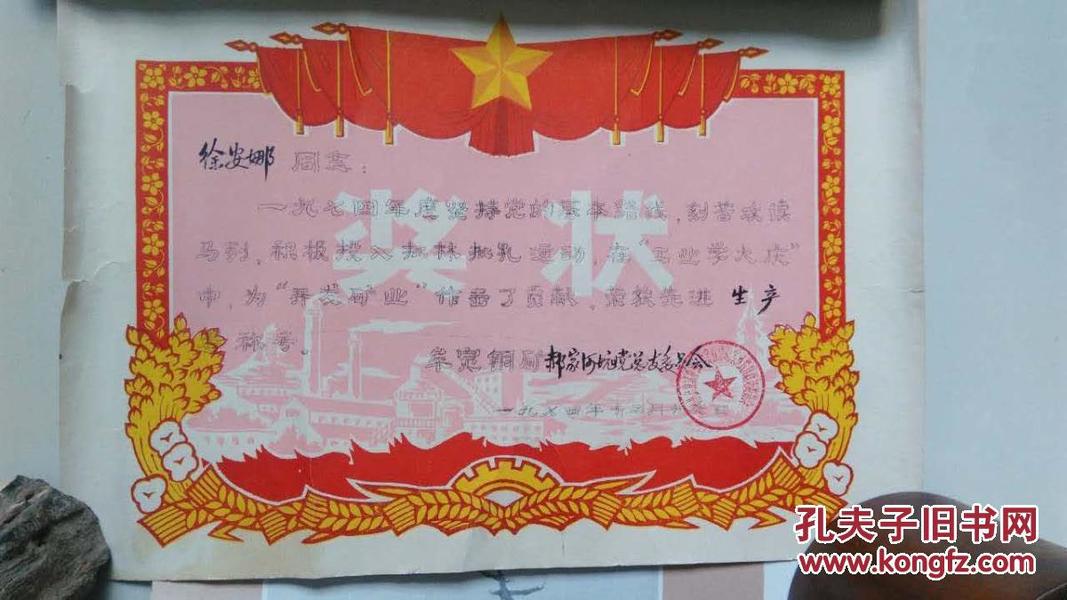 徐安娜 同志：
奖状
一九七四年度坚持党的基本路线，刻苦攻读
马列，积极投入批林批孔运动，在“工业学大庆”
中，为“开发矿业”作出了贡献，荣获先进 生产
称号。
牟定铜矿郝家河坑党总支委员会
一九七四年十二月
孔夫子旧书网
www.kongfz.com